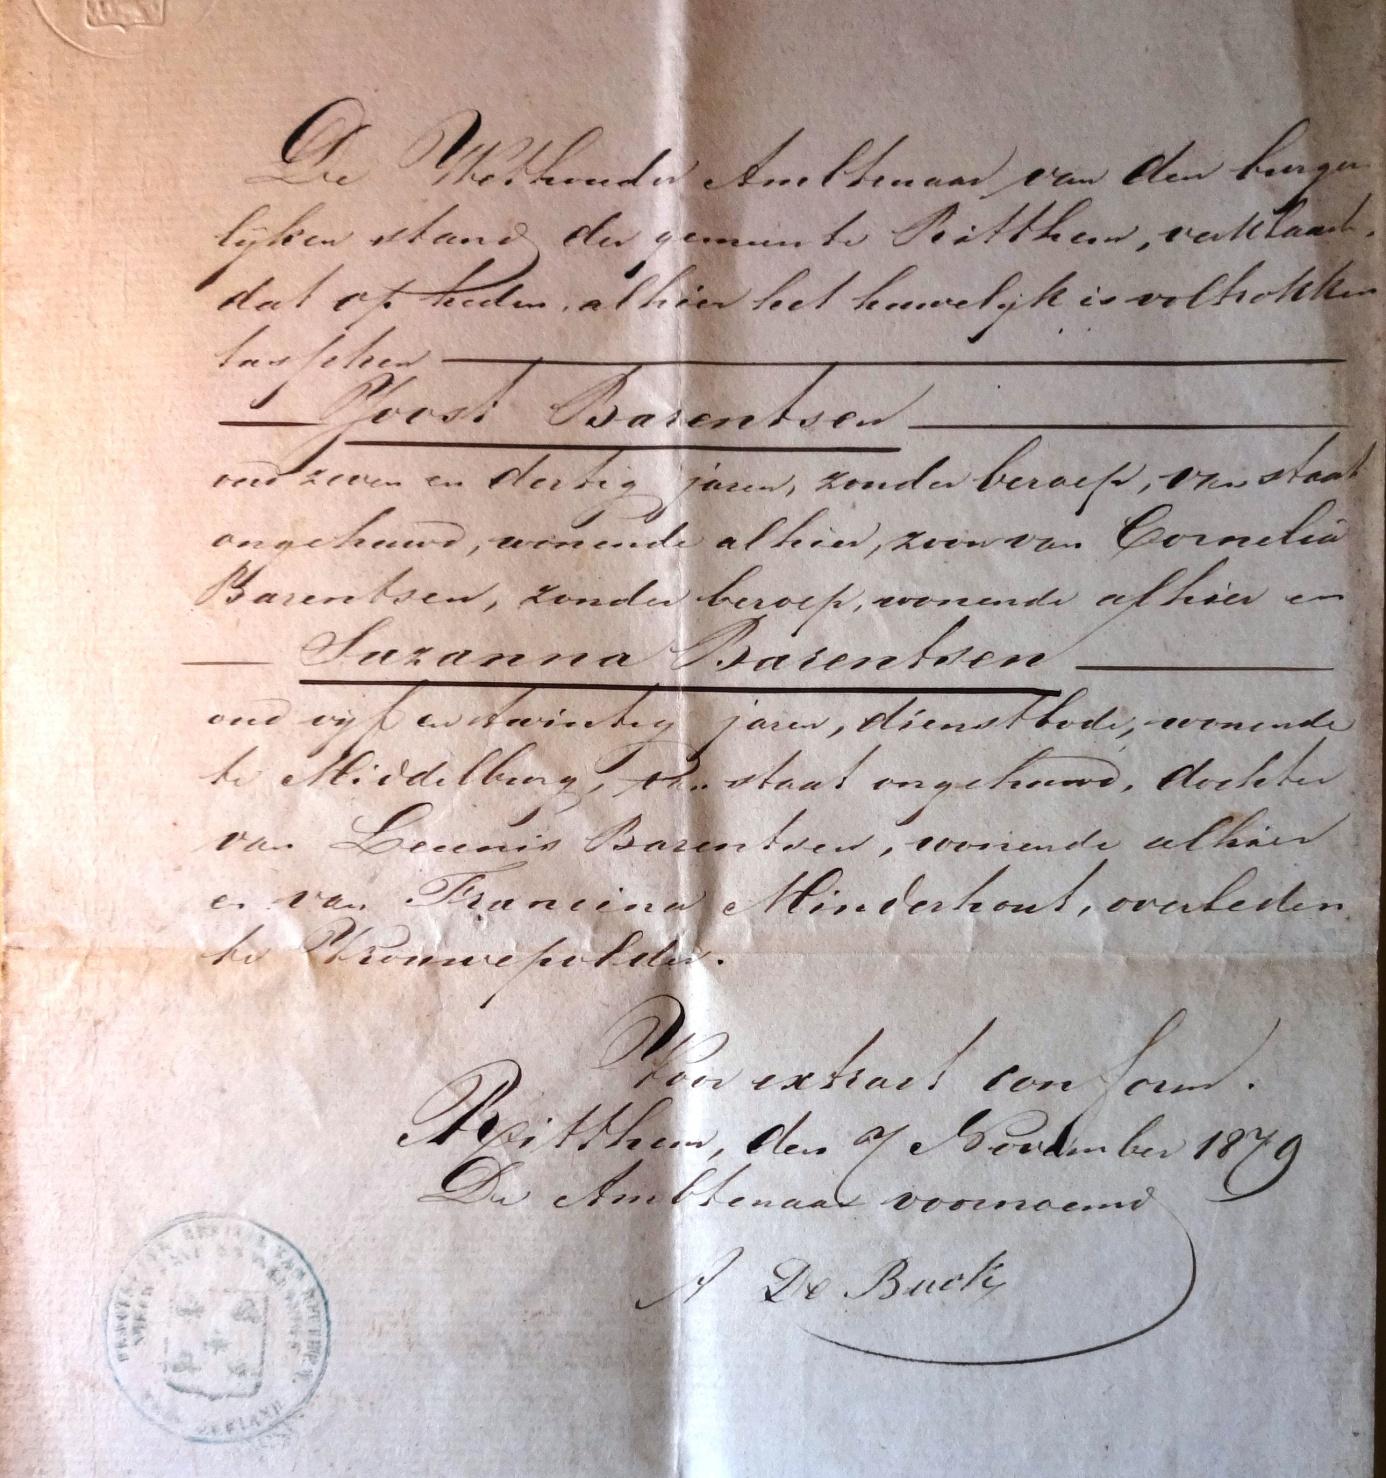 De Wethouder Ambtenaar van den burger
lijken stand der gemeente Ritthem, verklaart,
dat op heden, alhier het huwelijk is voltrokken
tusschen
Joost Barentsen
oud zeven en dertig jaren, zonder beroep, van staat
ongehuwd, wonende alhier, zoon van Cornelia
Barentsen, zonder beroep, wonende alhier en
Suzanna Barentsen
oud vijf en twintig jaren, dienstbode, wonende
te Middelburg, van staat ongehuwd, dochter
van Leunis Barentsen, wonende alhier
en van Francina Minderhout, overleden
te Vrouwepolder.
Voor extract conform.
Ritthem, den 7 November 1879
De Ambtenaar voornoemd
A De Buck
ZEELAND